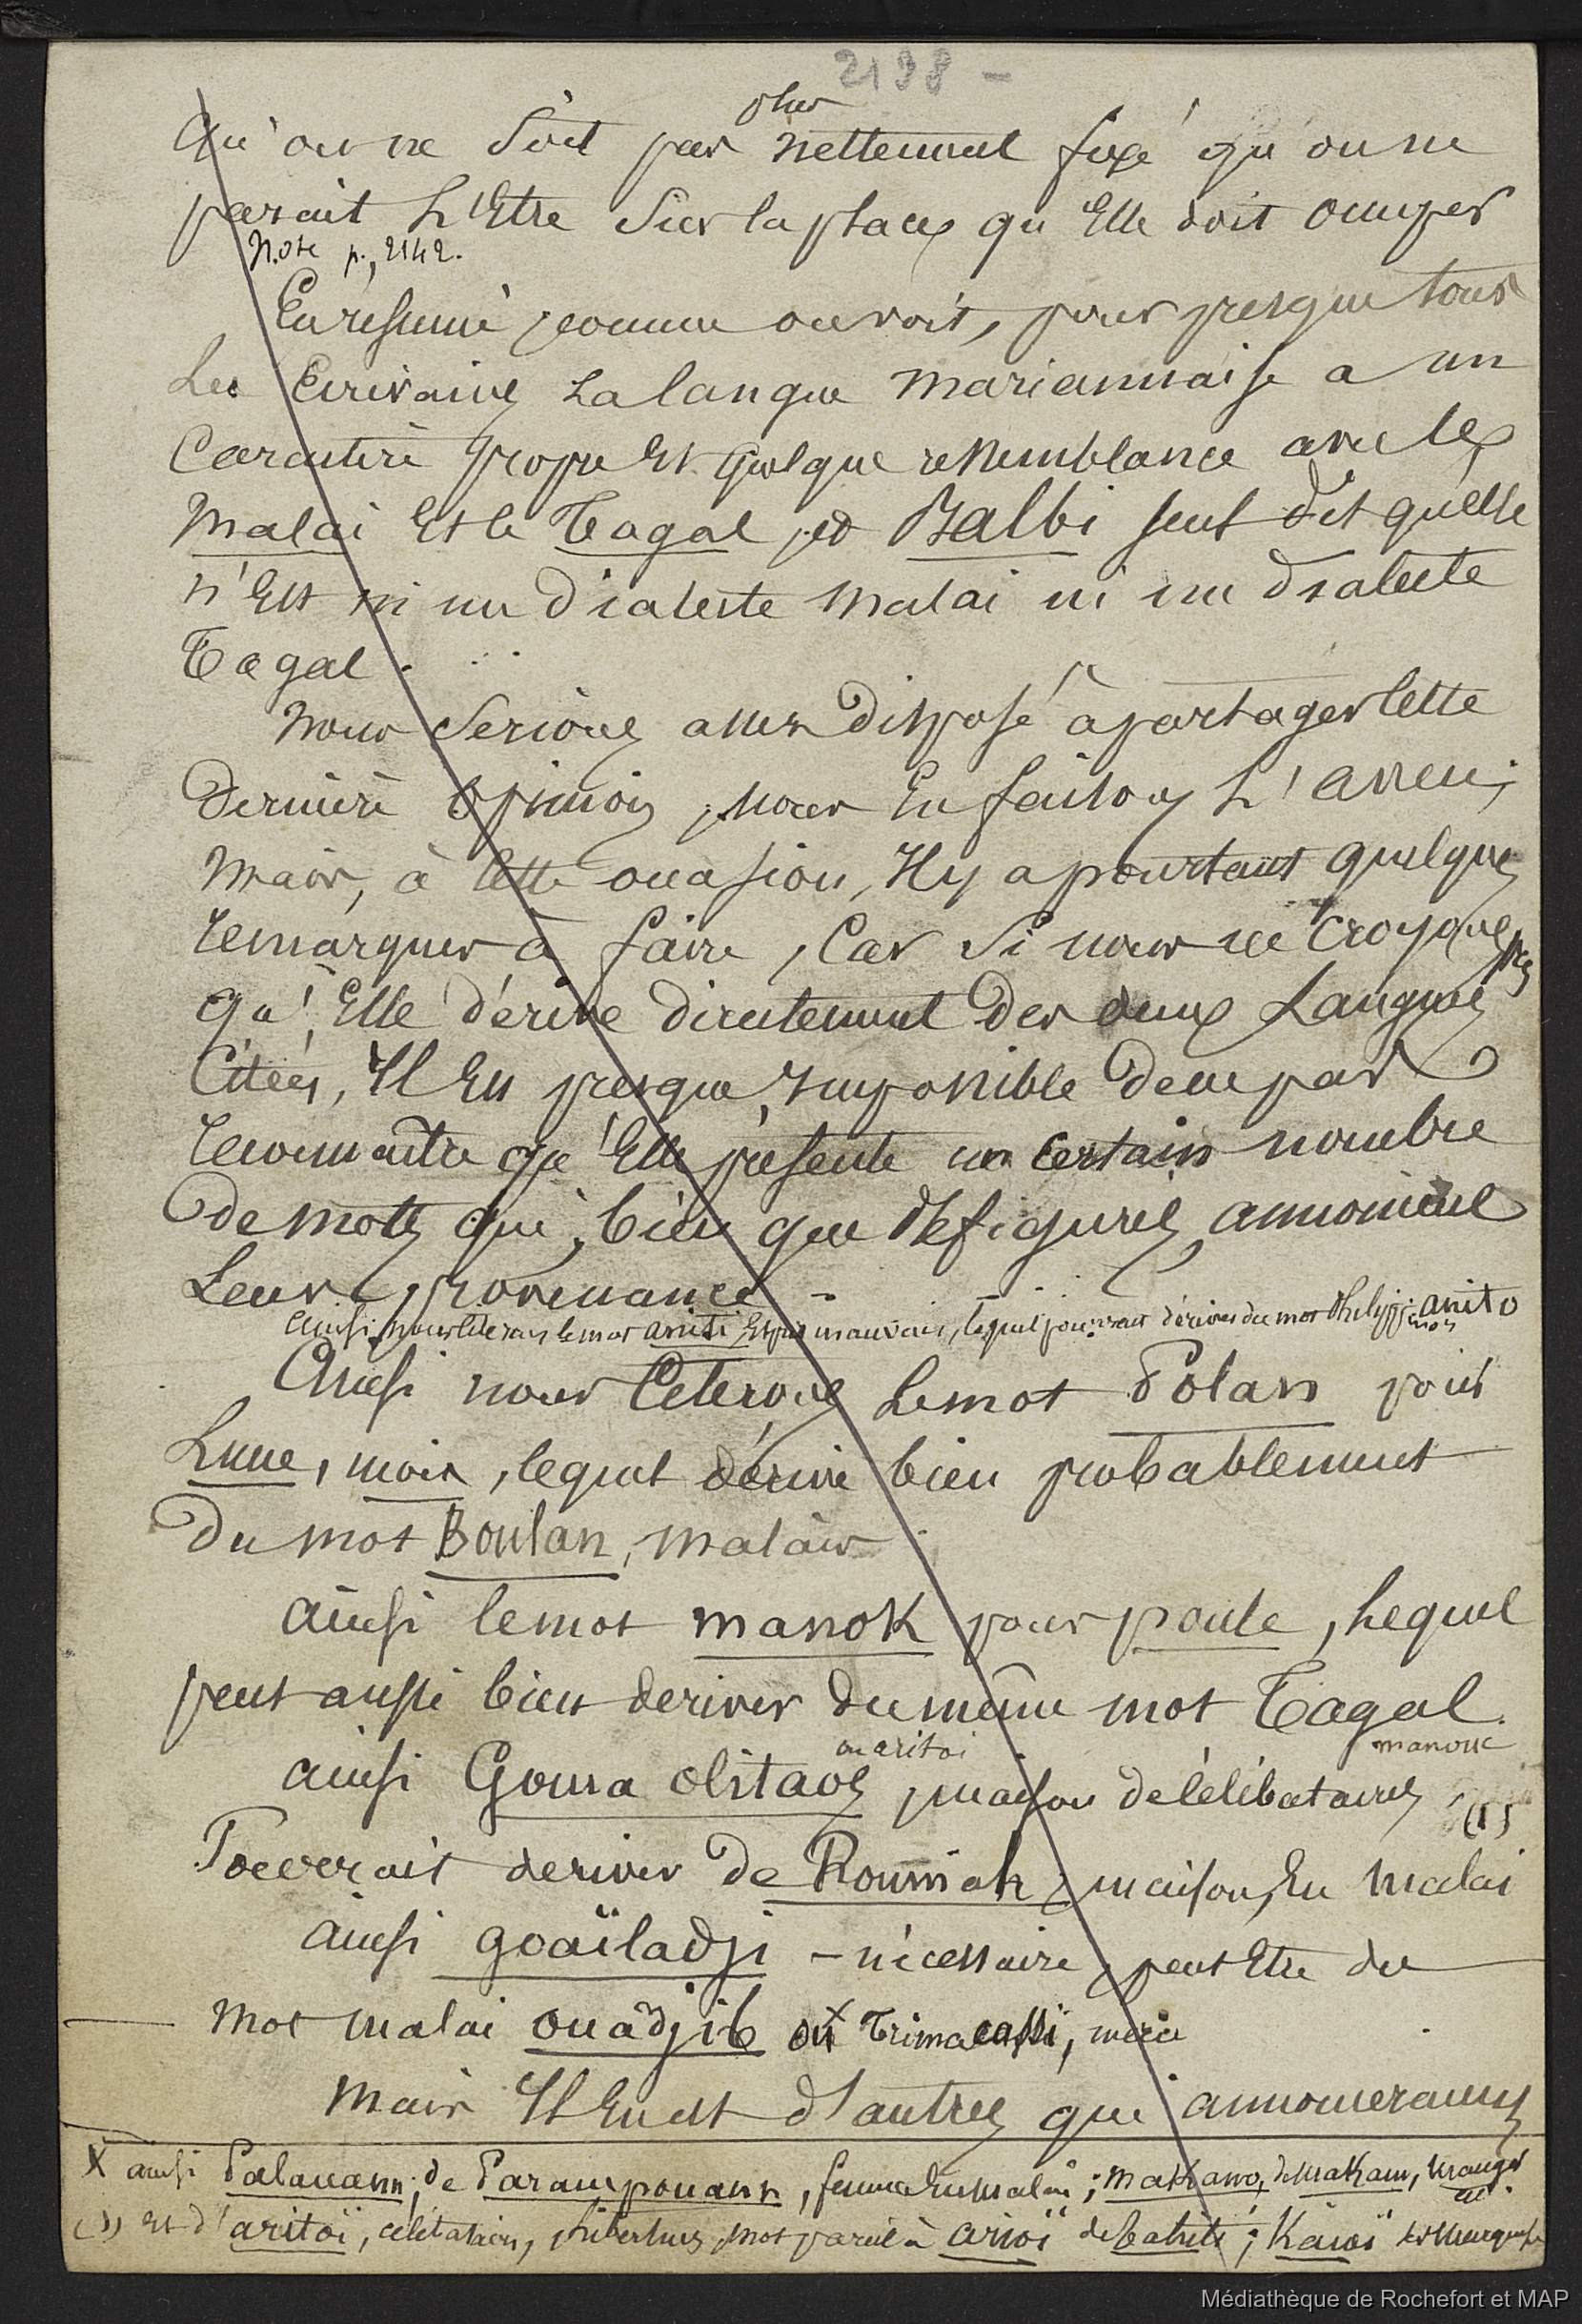 2138 -
plus
Qu'on ne soit pas nettement fixé qu'on ne
parait L'Etre sur la place qu'Elle doit occuper
Note p., 2142.
En résumé, comme on voit, pour presque tous
Les Ecrivains La langue mariannaise a un
Caractère propre Et quelque ressemblance avec le
Malai Et le Tagal, et Balbi seul dit qu'elle
n'Est ni un dialecte malai ni un dialecte
Tagal.
Nous serions assez disposé à partager cette
dernière opinion, nous En faisons L'aveu;
Mais, à cette occasion, Il y a pourtant quelques
remarques à faire, Car si nous ne croyons pas
qu'Elle dérive directement des deux Langues
Citées, Il Est presque Impossible de ne pas
reconnaitre qu'Elle présente un certain nombre
de mots qui, bien que défigurés, annoncent
Leur provenance -
Ainsi nous citerons le mot aniti, Esprit mauvais, lequel pourrait dériver du mot Philippin anito
Ainsi nous Citerons Le mot Polan pour
Lune, mois, lequel dérive bien probablement
du mot Boulan, malais
ainsi le mot manok pour poule, Lequel
peut aussi bien deriver du même mot Tagal.
manouc
ou aritoi
ainsi Gouma olitaos, maison de célibataires (1)
Pourrait deriver de Roumah, maison, En malai
ainsi goaïladji - nécessaire, peut Etre du
mot malai ouâdjib ou X Trimacassi, merci
Mais Il En est d'autres qui annonceraient
X ainsi Palaouann, de Parampouann, femme En malai; makano, de makam, manger
(1) Et d'aritoï, célibataires, libertins, mot pareil à arioï de Tahiti; Kaioï des Marquises
Médiathèque de Rochefort et MAP